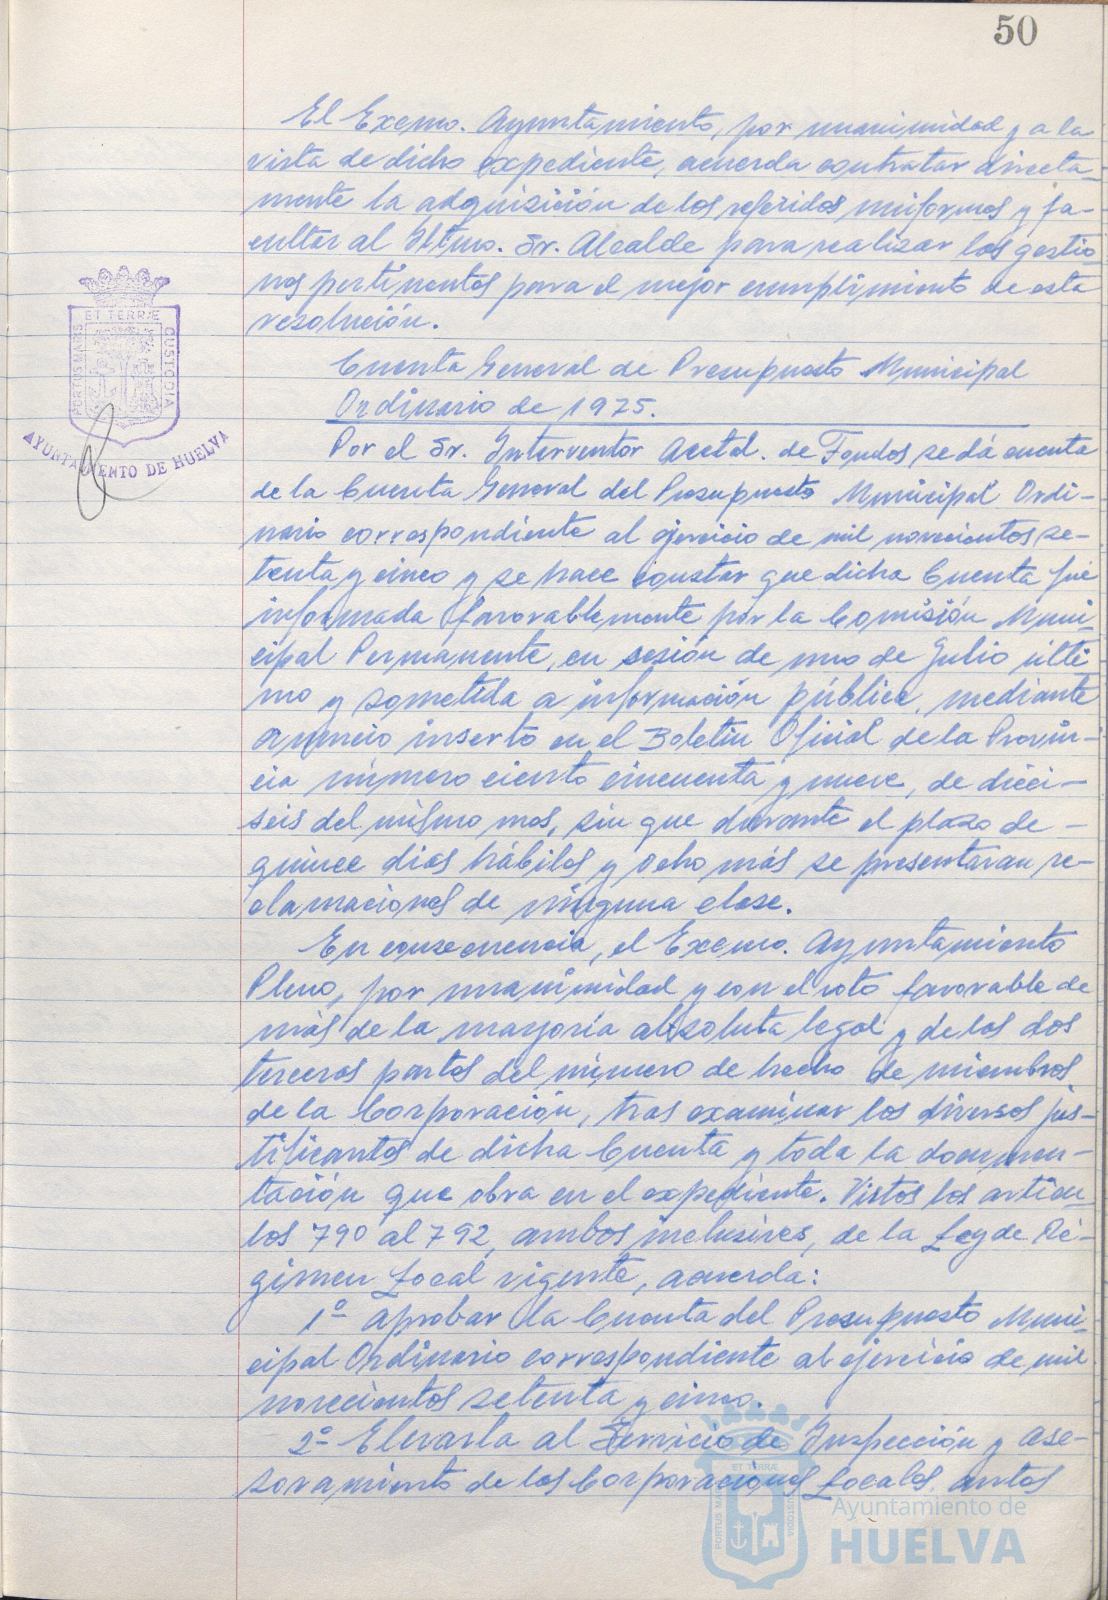 50
El Excmo. Ayuntamiento, por unanimidad y a la
vista de dicho expediente, acuerda contratar directa-
mente la adquisición de los referidos uniformes y fa-
cultar al Iltmo. Sr. Alcalde para realizar las gestio-
nes pertinentes para el mejor cumplimiento de esta
resolución.
Cuenta General de Presupuesto Municipal
Ordinario de 1975.
Por el Sr. Interventor Acctal. de Fondos se dá cuenta
de la Cuenta General del Presupuesto Municipal Ordi-
nario correspondiente al ejercicio de mil novecientos se-
tenta y cinco y se hace constar que dicha Cuenta fué
informada favorablemente por la Comisión Muni-
cipal Permanente, en sesión de uno de Julio últi-
mo y sometida a información pública, mediante
anuncio inserto en el Boletín Oficial de la Provin-
cia número ciento cincuenta y nueve, de dieci-
seis del mismo mes, sin que durante el plazo de -
quince dias hábiles y ocho más se presentaran re-
clamaciones de ninguna clase.
En consecuencia, el Excmo. Ayuntamiento
Pleno, por unanimidad y con el voto favorable de
más de la mayoria absoluta legal y de las dos
terceras partes del número de hecho de miembros
de la Corporación, tras examinar los diversos jus-
tificantes de dicha Cuenta y toda la documen-
tación que obra en el expediente. Vistos los articu-
los 790 al 792, ambos inclusives, de la Ley de Ré-
gimen Local vigente, acuerda:
1º Aprobar la Cuenta del Presupuesto Muni-
cipal Ordinario correspondiente al ejercicio de mil
novecientos setenta y cinco.
2º Elevarla al Servicio de Inspección y Ase-
soramiento de las Corporaciones Locales, antes
PORTUS MARIS ET TERRÆ CUSTODIA
AYUNTAMIENTO DE HUELVA
PORTUS MARIS ET TERRÆ CUSTODIA
Ayuntamiento de
HUELVA